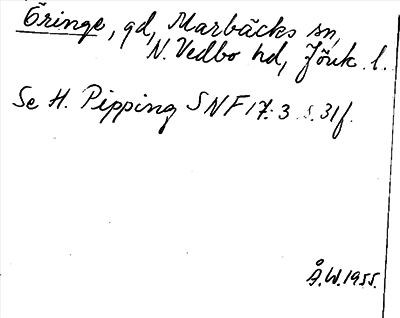 Öringe, gd, Marbäcks sn,
N. Vedbo hd, Jönk. l.
Se H. Pipping SNF 17:3 s. 31f.
Å.W. 1955.